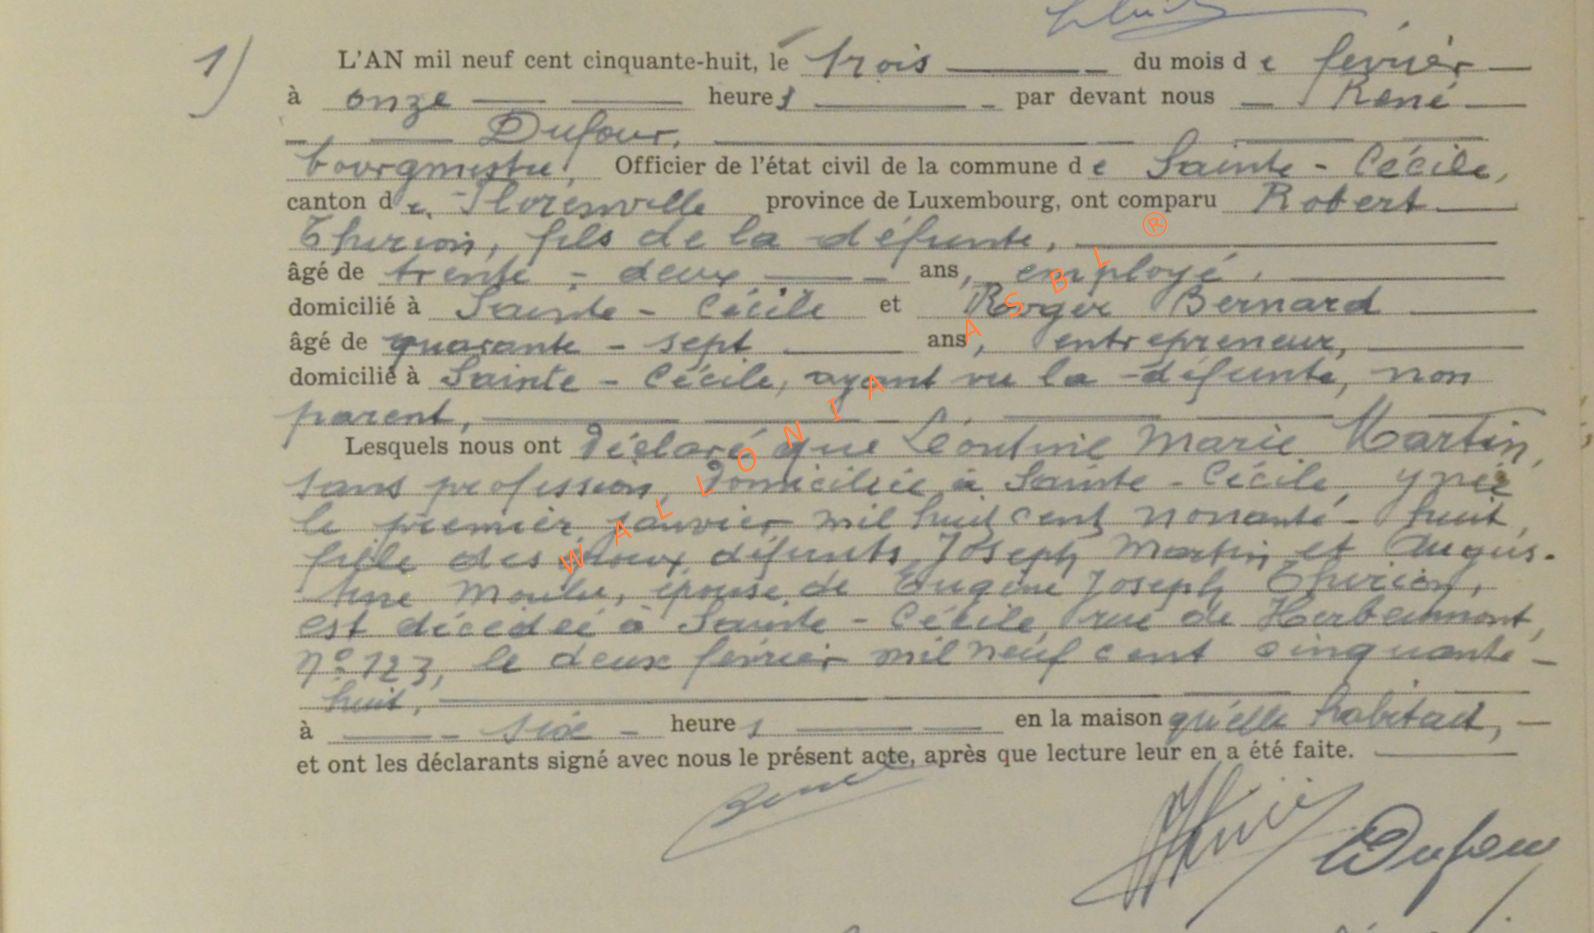 1)
L'AN mil neuf cent cinquante-huit, le trois du mois de février
à onze heures par devant nous René
Dufour,
bourgmestre, Officier de l'état civil de la commune de Sainte-Cécile,
canton de Florenville province de Luxembourg, ont comparu Robert
Thirion, fils de la défunte,
âgé de trente-deux ans, employé,
domicilié à Sainte-Cécile et Roger Bernard
âgé de quarante-sept ans, entrepreneur,
domicilié à Sainte-Cécile, ayant vu la défunte, non
parent,
Lesquels nous ont déclaré que Léontine Marie Martin,
sans profession, domiciliée à Sainte-Cécile, y née
le premier janvier mil huit cent nonante-huit,
fille des époux défunts Joseph Martin et Augus-
tine Moulu, épouse de Eugène Joseph Thirion,
est décédée à Sainte-Cécile, rue de Herbeumont,
n° 123, le deux février mil neuf cent cinquante-
huit,
à six heures en la maison qu'elle habitait,
et ont les déclarants signé avec nous le présent acte, après que lecture leur en a été faite.
Dufour
WALLONIA ASBL ®